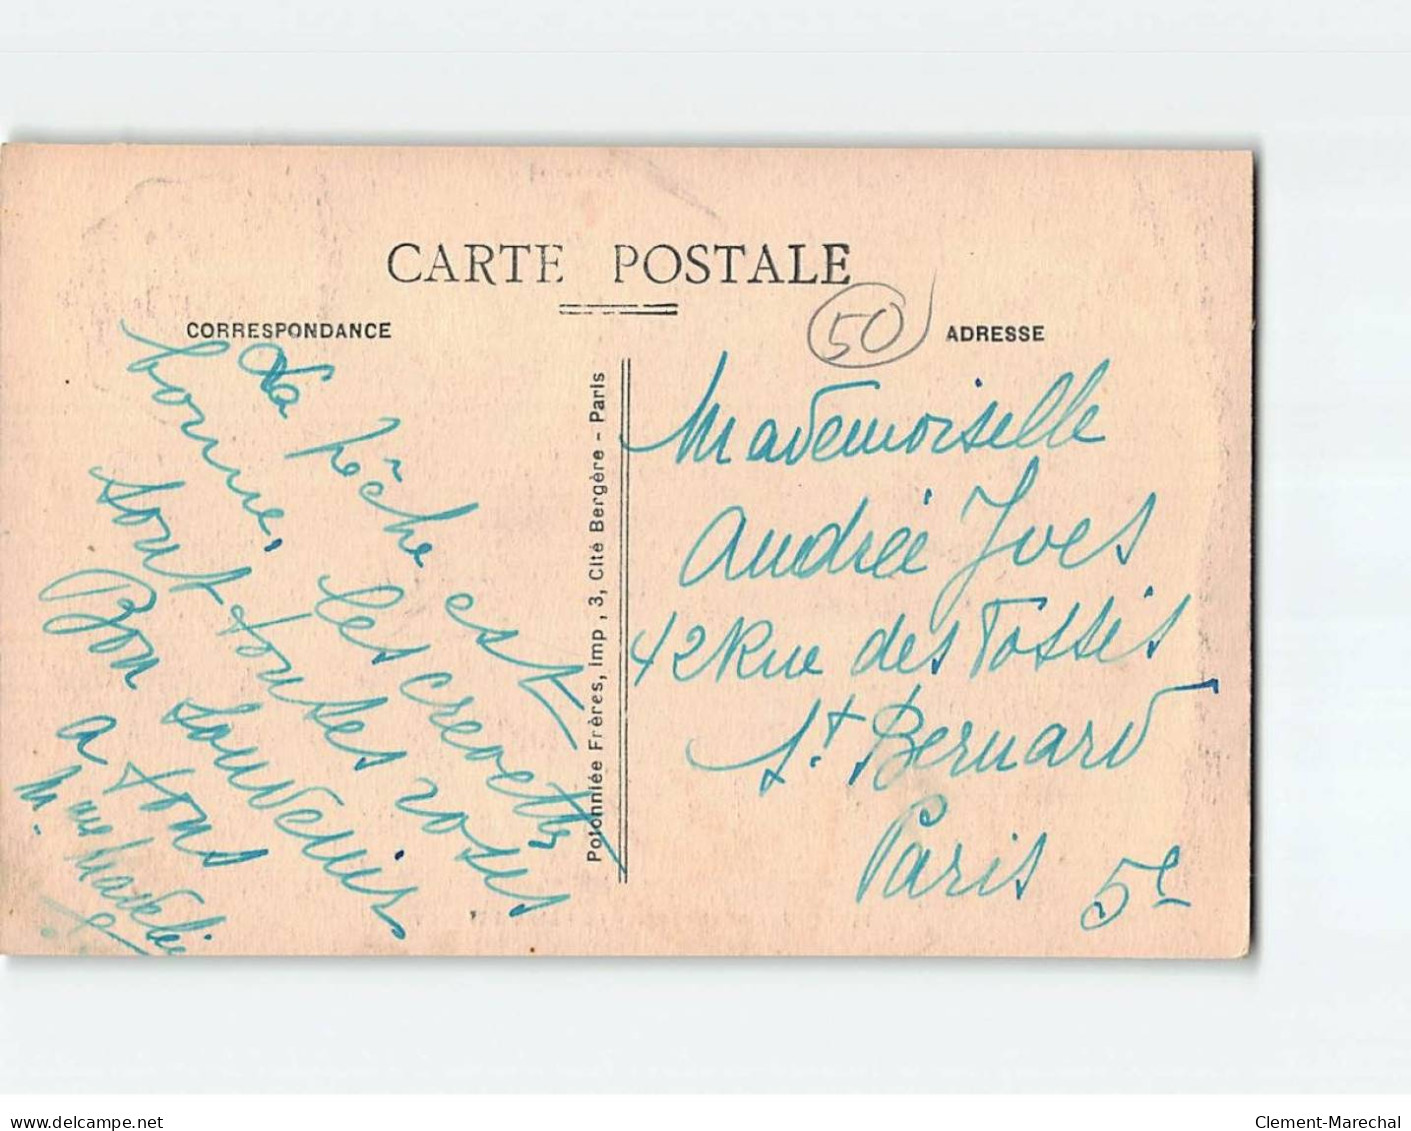 CARTE POSTALE
CORRESPONDANCE
La pêche est
bonne, les crevettes
sont toutes roses
Bon souvenir
a tous
Mme
Potonniée Frères, Imp, 3, Cité Bergère - Paris
50
ADRESSE
Mademoiselle
Andrée Yves
42 Rue des Fossés
St. Bernard
Paris 5e
www.delcampe.net
Clement-Marechal